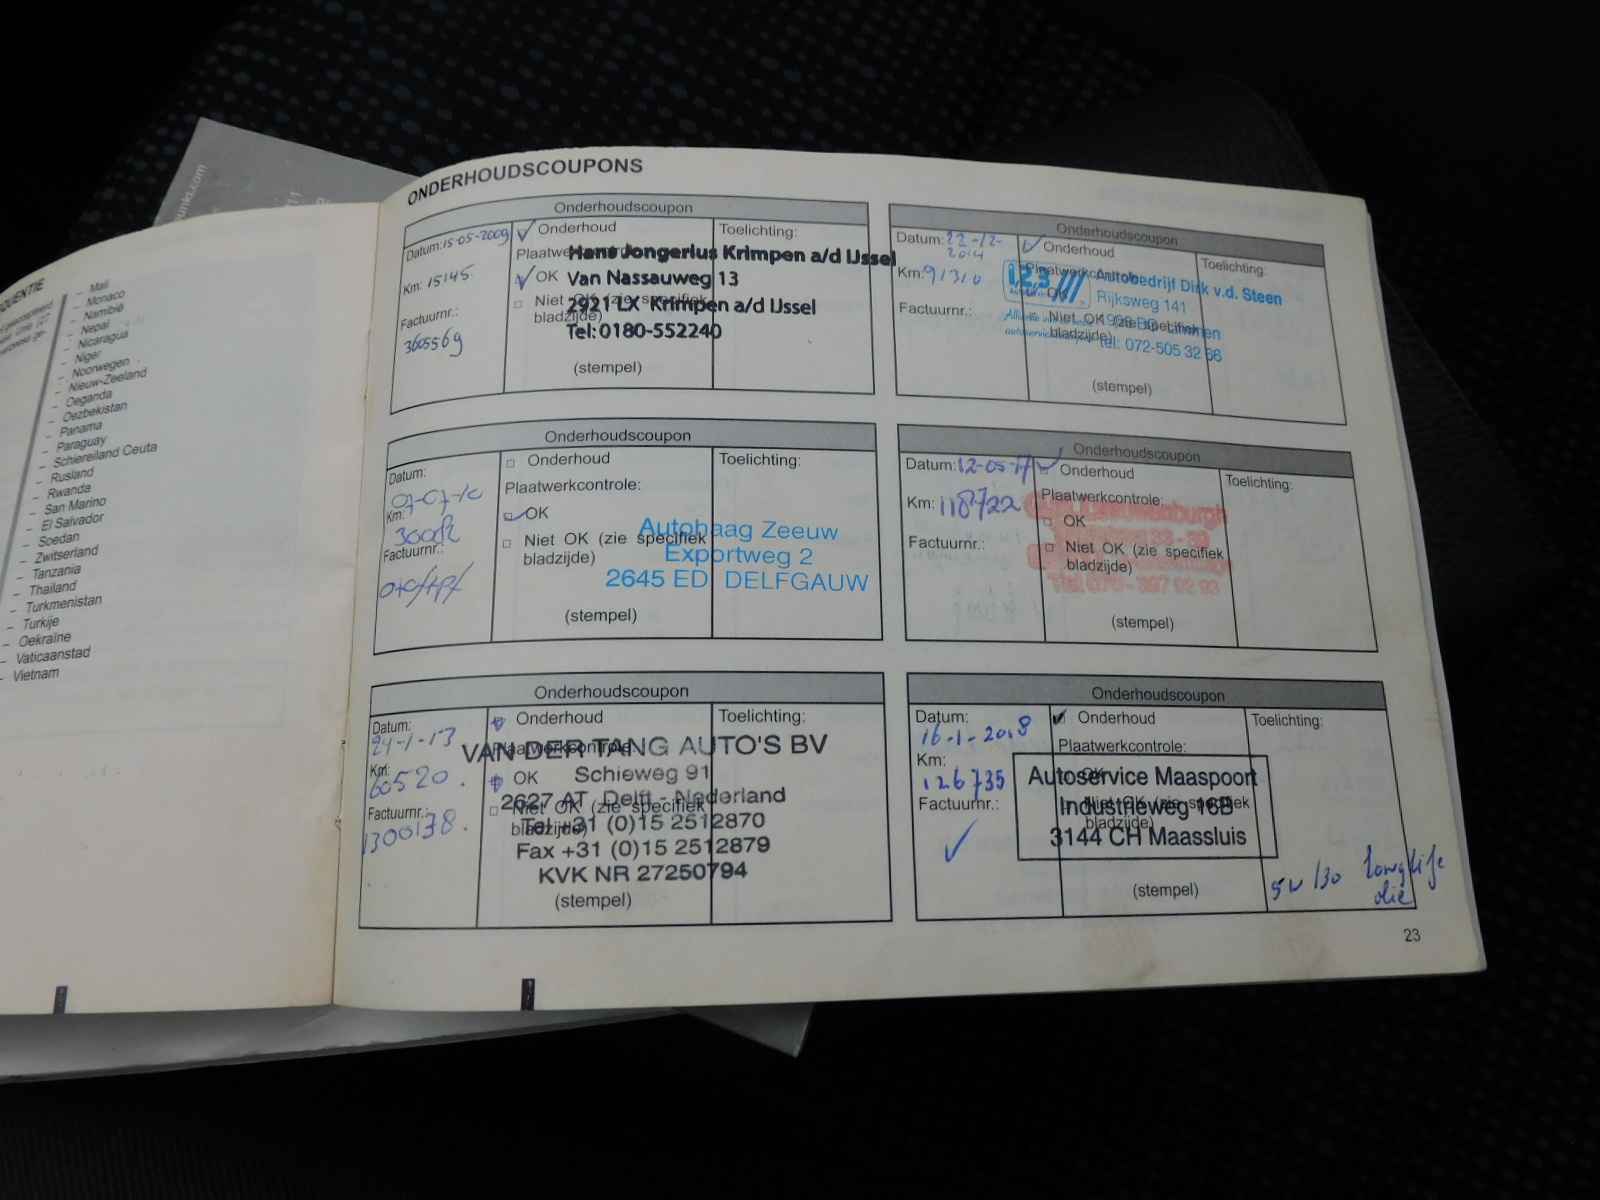 QUENTIE
– Mali
– Monaco
– Namibië
– Nepal
– Nicaragua
– Niger
– Noorwegen
– Nieuw-Zeeland
– Oeganda
– Oezbekistan
– Panama
– Paraguay
– Schiereiland Ceuta
– Rusland
– Rwanda
– San Marino
– El Salvador
– Soedan
– Zwitserland
– Tanzania
– Thailand
– Turkmenistan
– Turkije
– Oekraïne
– Vaticaanstad
– Vietnam
ONDERHOUDSCOUPONS
Onderhoudscoupon
Datum: 15-05-2009
Km: 15145
Factuurnr.:
3605569
Onderhoud
OK
Niet OK (zie specifiek
bladzijde)
(stempel)
Toelichting:
Hans Jongerius Krimpen a/d IJssel
Van Nassauweg 13
2921 LX Krimpen a/d IJssel
Tel: 0180-552240
Onderhoudscoupon
Datum: 22-12-
2014
Km: 91310
Factuurnr.:
Onderhoud
Plaatwerkcontrole:
OK
Niet OK (zie specifiek
bladzijde)
(stempel)
Toelichting:
1,2,3
Autobedrijf Dirk v.d. Steen
Rijksweg 141
Limmen
tel. 072-505 32 66
Onderhoudscoupon
Datum:
07-07-10
Km:
Factuurnr.:
Onderhoud
Plaatwerkcontrole:
OK
Niet OK (zie specifiek
bladzijde)
(stempel)
Toelichting:
Autohaag Zeeuw
Exportweg 2
2645 ED DELFGAUW
Onderhoudscoupon
Datum: 12-05-17
Km: 118722
Factuurnr.:
Onderhoud
Plaatwerkcontrole:
OK
Niet OK (zie specifiek
bladzijde)
(stempel)
Toelichting:
Onderhoudscoupon
Datum:
24-1-13
Km:
60520.
Factuurnr.:
1300138.
Onderhoud
Plaatwerkcontrole:
OK
Niet OK (zie specifiek
bladzijde)
(stempel)
Toelichting:
VAN DER TANG AUTO'S BV
Schieweg 91
2627 AT Delft - Nederland
Tel +31 (0)15 2512870
Fax +31 (0)15 2512879
KVK NR 27250794
Onderhoudscoupon
Datum:
16-1-2018
Km:
126735
Factuurnr.:
Onderhoud
Plaatwerkcontrole:
OK
Niet OK (zie specifiek
bladzijde)
(stempel)
Toelichting:
Autoservice Maaspoort
Industrieweg 16B
3144 CH Maassluis
5w/30 longlife
olie
23